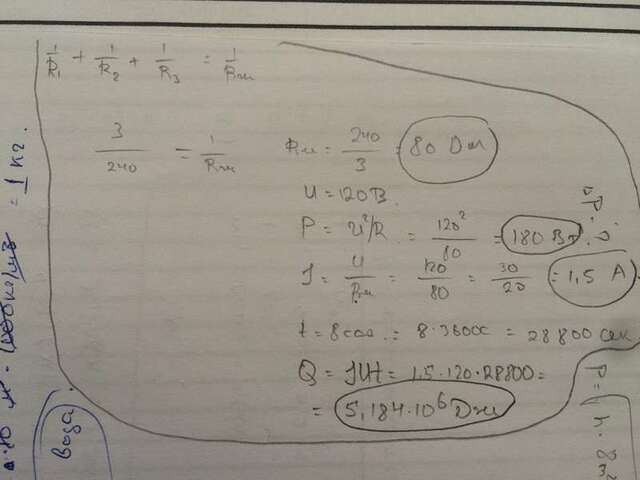 1/R₁ + 1/R₂ + 1/R₃ = 1/Rлн
3/240 = 1/Rлн
Rлн = 240/3 = 80 Ом
U = 120 В.
P = U²/R = 120²/80 = 180 Вт.
J = U/Rлн = 120/80 = 30/20 = 1,5 А
t = 8 час = 8·3600с = 28800 сек
Q = JUt = 1,5·120·28800 =
= 5,184·10⁶ Дж
= 1 кг.
вода